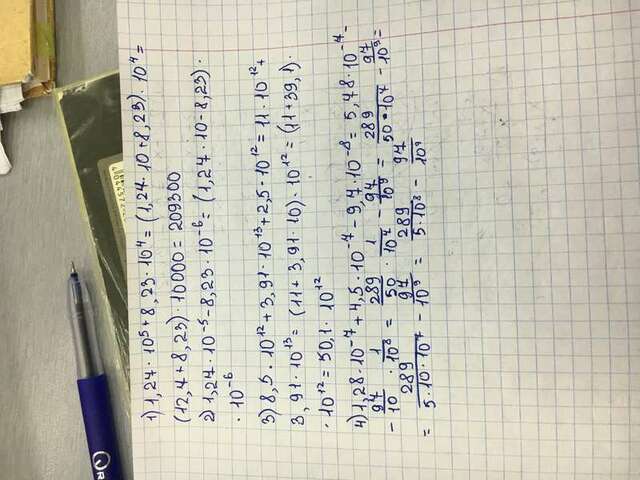 1) 1,27 · 10⁵ + 8,23 · 10⁴ = (1,27 · 10 + 8,23) · 10⁴ =
(12,7 + 8,23) · 10000 = 209300
2) 1,27 · 10⁻⁵ - 8,23 · 10⁻⁶ = (1,27 · 10 - 8,23) ·
· 10⁻⁶
3) 8,5 · 10¹² + 3,91 · 10¹³ + 2,5 · 10¹² = 11 · 10¹² +
3,91 · 10¹³ = (11 + 3,91 · 10) · 10¹² = (11 + 39,1) ·
· 10¹² = 50,1 · 10¹²
4) 1,28 · 10⁻⁷ + 4,5 · 10⁻⁷ - 9,7 · 10⁻⁸ = 5,78 · 10⁻⁷ -
- 97/10 · 1/10⁸ = 289/50 · 1/10⁷ - 97/10⁹ = 289/50 · 10⁷ - 97/10⁹ =
= 289/5 · 10 · 10⁷ - 97/10⁹ = 289/5 · 10⁸ - 97/10⁹